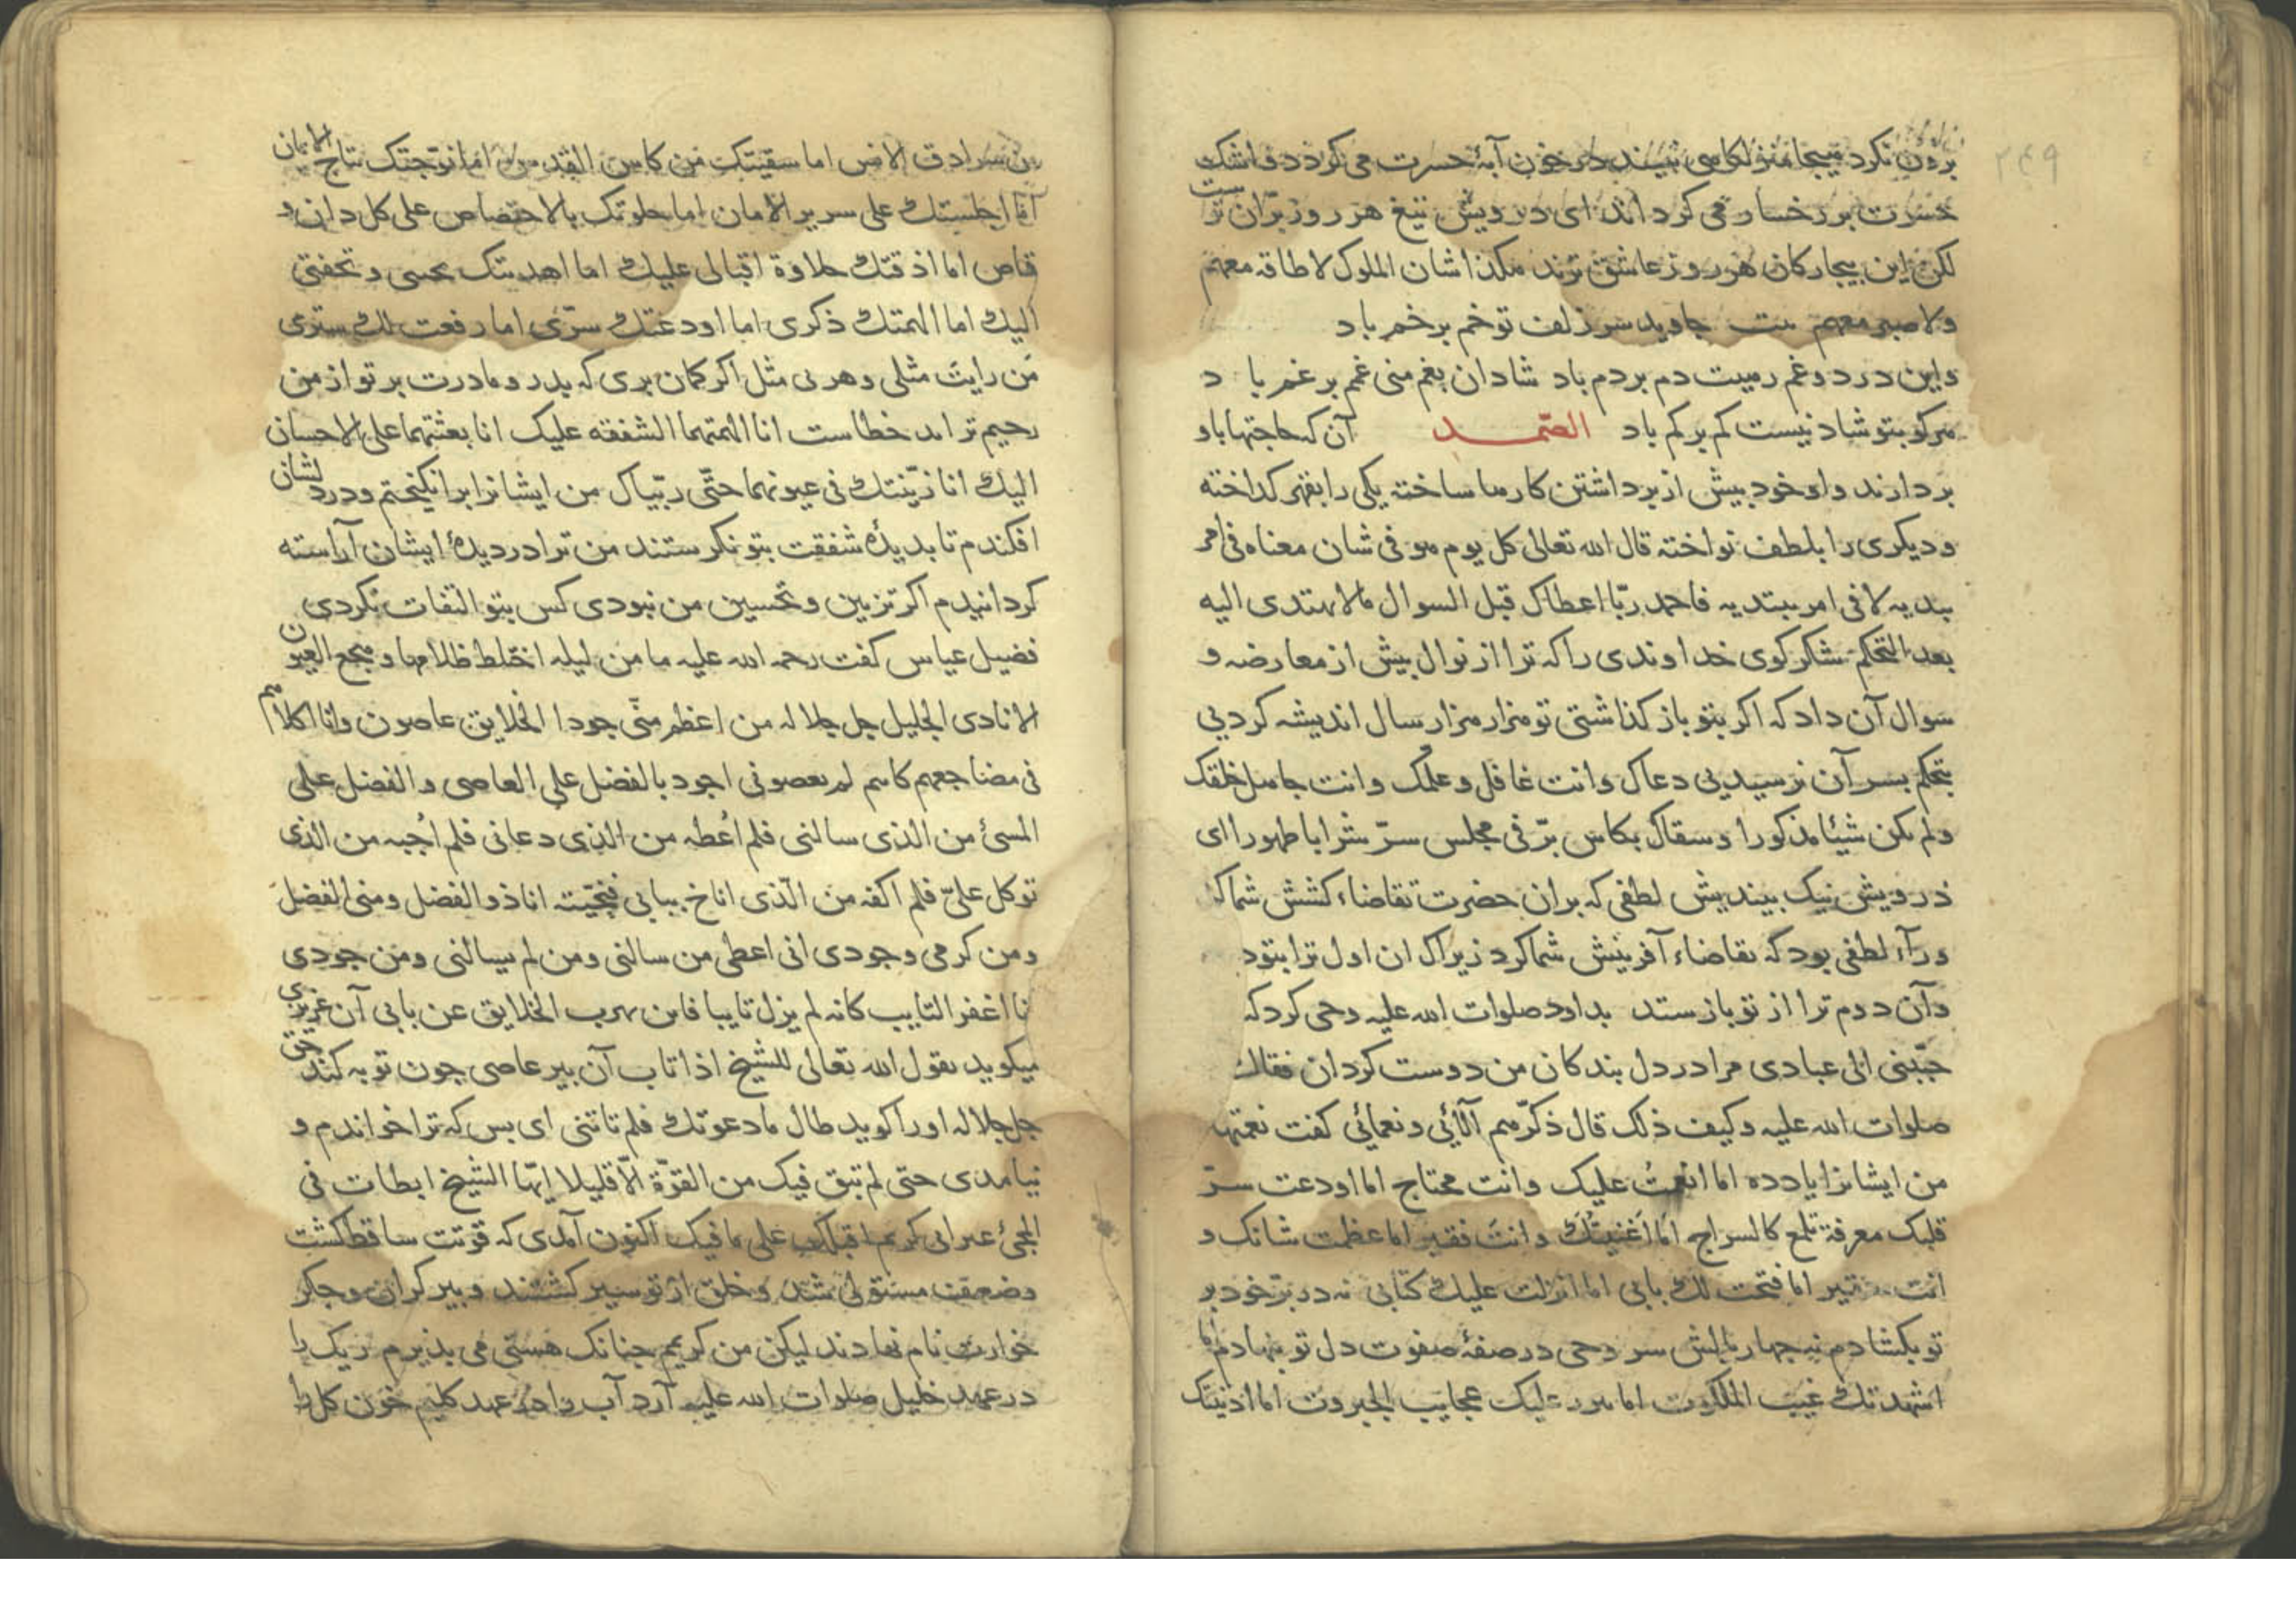 ۲۴۹
برون نکرد می کرد و اشک
حسرت بر رخسار می کرد اند ای درویش تیغ هر روز بران تر است
لکن این بیجارکان هر روز عاشق ترند مکذا شان الملوک لا طاقه معهم
ولا صبر معهم بیت جاوید سر زلف تو خم بر خم باد
واین درد و غم رمیت دم بردم باد شادان بغم منی غم بر غم با د
مرکو بتو شاد نیست کم بر کم باد الصّمـــد آن که حاجتها باو
بردارند واو خود بیش از برداشتن کارها ساخته یکی را بقهر کداخته
ودیکری را بلطف نواخته قال الله تعالی کل یوم هو فی شان معناه فی امر
یبدیه لا فی امر یبتدیه فاحمد ربّا اعطاک قبل السوال ما لا یهتدی الیه
بعد التحکم شکر کوی خداوندی را که ترا از نوال بیش از معارضه و
سوال آن داد که اکر بتو باز کذاشتی تو هزار هزار سال اندیشه کردیی
بتحکم بسر آن نرسیدیی دعاک وانت غافل وعلمک وانت جاهل خلقک
ولم یکن شیئا مذکورا وسقاک بکاس برّ فی مجلس سرّ شرابا طهورا ای
درویش نیک بیندیش لطفی که بران حضرت تقاضاء کشش شما کـ
ورآء لطفی بود که تقاضاء آفرینش شما کرد زیراک ان اول ترا بتو د
وآن دوم ترا از تو باز ستد بداود صلوات الله علیه وحی کرد که
حبّبنی الی عبادی مرا در دل بندکان من دوست کردان فقال
صلوات الله علیه وکیف ذلک قال ذکّرهم آلائی ونعمائی کفت نعمتها
من ایشانرا یاد ده اما انعمتُ علیک وانت محتاج اما اودعت سرّ
قلبک معرفة تلمع کالسراج اما اغنیتک وانت فقیر اما عظمت شانک و
انت اما فتحت لک بابی اما انزلت علیک کتابی نه در برّ خود بر
تو بکشادم نه جهار بالش سر وحی در صفهٔ صفوت دل تو نهادم اما
اشهدتک غیب الملکوت اما علیک عجایب الجبروت اما ادنیتک
من سرادق الانس اما سقیتک من کاس القدس اما توجتک بتاج الایمان
اما اجلستک علی سریر الامان اما جلوتک بالاختصاص علی کل دان و
قاص اما اذقتک حلاوة اقبالی علیک اما اهدیتک تحیتی وتحفتی
الیک اما الهمتک ذکری اما اودعتک سرّی اما رفعت لک ستری
من رایت مثلی وهو بی مثل اکر کمان بری که بدر ومادرت بر تو از من
رحیم تر اند خطاست انا الهمتهما الشفقه علیک انا بعثتهما علی الاحسان
الیک انا زیّنتک فی عیونهما حتّی ربّیاک من ایشانرا برانکیختم ودر دلشان
افکندم تا بدیدهٔ شفقت بتو نکرستند من ترا در دیدهٔ ایشان آراسته
کردانیدم اکر تزیین وتحسین من نبودی کس بتو التفات نکردی
فضیل عیاس کفت رحمه الله علیه ما من لیله اختلط ظلامها و مجمع العیون
الا نادی الجلیل جل جلاله من اعظم منّی جودا الخلایق عاصون وانا اکلأهم
فی مضاجعهم کانهم لم یعصونی اجود بالفضل علی العاصی والفضل علی
المسیٔ من الذی سالنی فلم اُعطه من الذی دعانی فلم اُجبه من الذی
توکل علیّ فلم اکفه من الّذی اناخ ببابی فنحّیته انا ذو الفضل ومنی الفضل
ومن کرمی وجودی انی اعطی من سالنی ومن لم یسالنی ومن جودی
انا اغفر التایب کانه لم یزل تایبا فاین یهرب الخلایق عن بابی آن عزیزی
میکوید یقول الله تعالی للشیخ اذا تاب آن بیر عاصی جون توبه کند حق
جل جلاله اورا کوید طال ما دعوتک فلم تاتنی ای بس که ترا خواندم و
نیامدی حتی لم تبق فیک من القوّة الّا قلیلا ایّها الشیخ ابطات فی
المجیٔ غیر انی کریم اقبلک علی ما فیک اکنون آمدی که قوّتت ساقط کشت
وضعفت مستولی شد وخلق از تو سیر کشتند وبیر کران وجکر
خوارت نام نهادند لیکن من کریمم جنانک هستی می بذیرم ریک را
در عهد خلیل صلوات الله علیه آرد آب را در عهد کلیم خون کل را